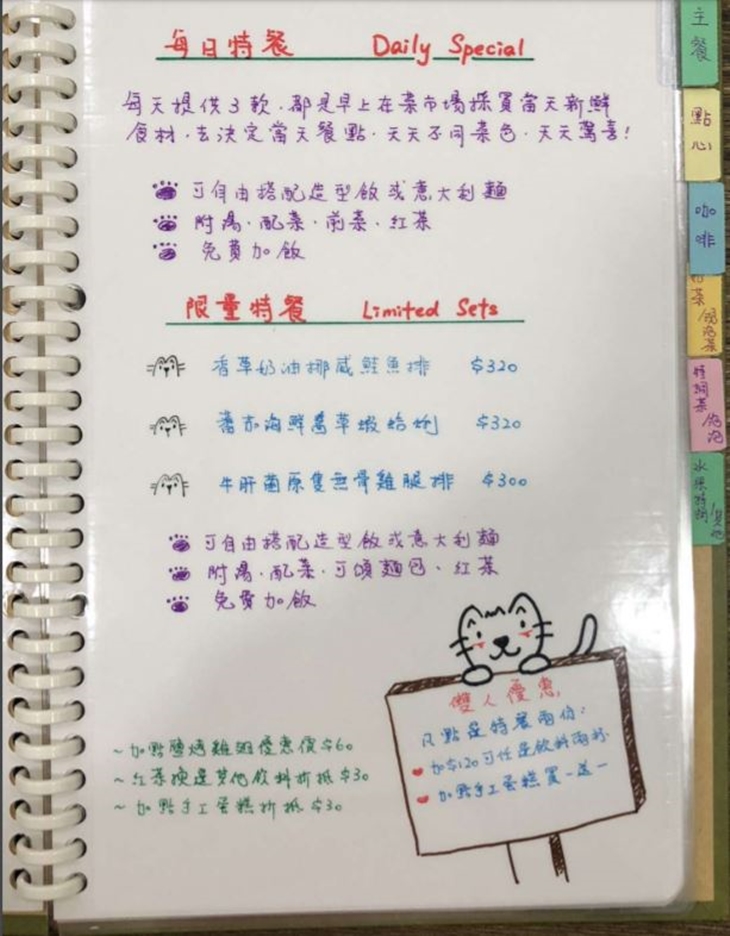 每日特餐 Daily Special
每天提供3款,都是早上在菜市場採買當天新鮮
食材,去決定當天餐點.天天不同菜色.天天驚喜!
可自由搭配造型飯或意大利麵
附湯.配菜.前菜.紅茶
免費加飯
限量特餐 Limited Sets
香草奶油挪威鮭魚排 $320
蕃茄海鮮 $320
牛肝菌原隻無骨雞腿排 $300
可自由搭配造型飯或意大利麵
附湯.配菜.可頌麵包.紅茶
免費加飯
雙人優惠
凡點是特餐兩份:
加$120可任選飲料兩杯
加點手工蛋糕買一送一
~加點鹽烤雞翅優惠價$60
~紅茶換選其他飲料折抵$30
~加點手工蛋糕折抵$30
主餐
點心
咖啡
水果特調